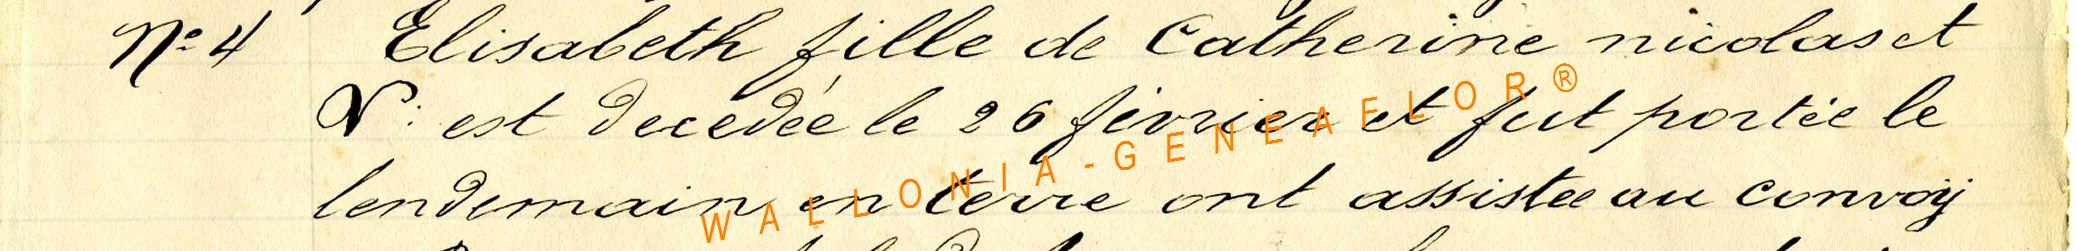 N° 4 Elisabeth fille de Catherine nicolas et
V: est decedée le 26 février et fut portée le
lendemain en terre ont assistee au convoij
WALLONIA-GENEAFLOR®